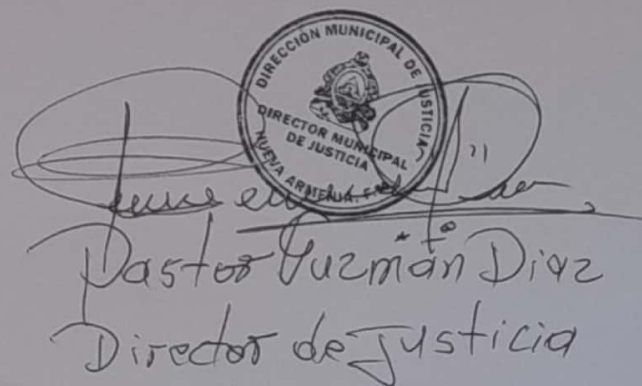 DIRECCIÓN MUNICIPAL DE JUSTICIA
DIRECTOR MUNICIPAL
DE JUSTICIA
NUEVA ARMENIA, F.M.
Pastor Guzmán Diaz
Director de Justicia